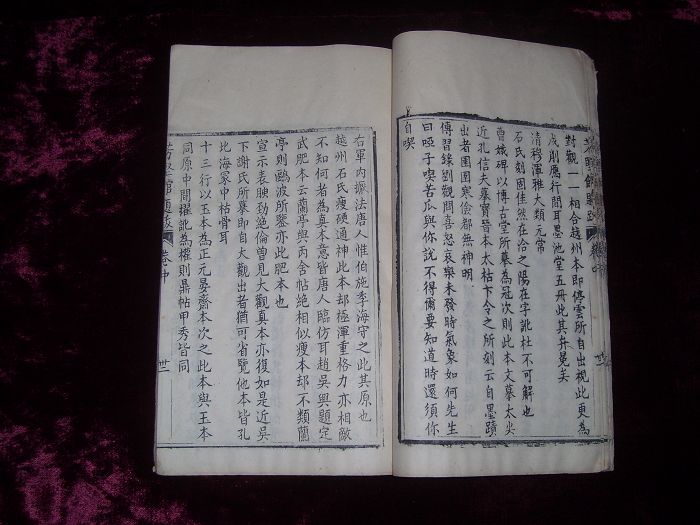 對觀一一相合越州本即停雲所自出視此更為
成則應行間耳墨池堂五冊此其弁冕矣
清穆渾雅大類元常
石氏刻固佳然在洽之陽在字訛杜不可解也
曹娥碑以博古堂所摹為冠次則此本文摹太尖
近孔信夫摹寶晉本太枯卞令之所刻云自墨蹟
出者團團寒儉都無神明
傳習錄劉觀聞喜怒哀樂未發時氣象如何先生
曰啞子喫苦瓜與你說不得爾要知道時還須你
自喫
右軍內擫法唐人惟伯施季海守之此其原也
越州石氏瘦硬通神此本却極渾重格力亦相敵
不知何者為真本意皆唐人臨仿耳趙吳興題定
武肥本云蘭亭與丙舍帖絕相似瘦本却不類蘭
亭則鷗波所鑒亦此肥本也
宣示表腴勁絕倫曾見大觀真本亦復如是近吳
下謝氏所摹即自大觀出者猶可省覽他本皆孔
比海冢中枯骨耳
十三行以玉本為正元晏齋本次之此本與玉本
同原中間擢訛為權則鼎帖甲秀皆同
卷中